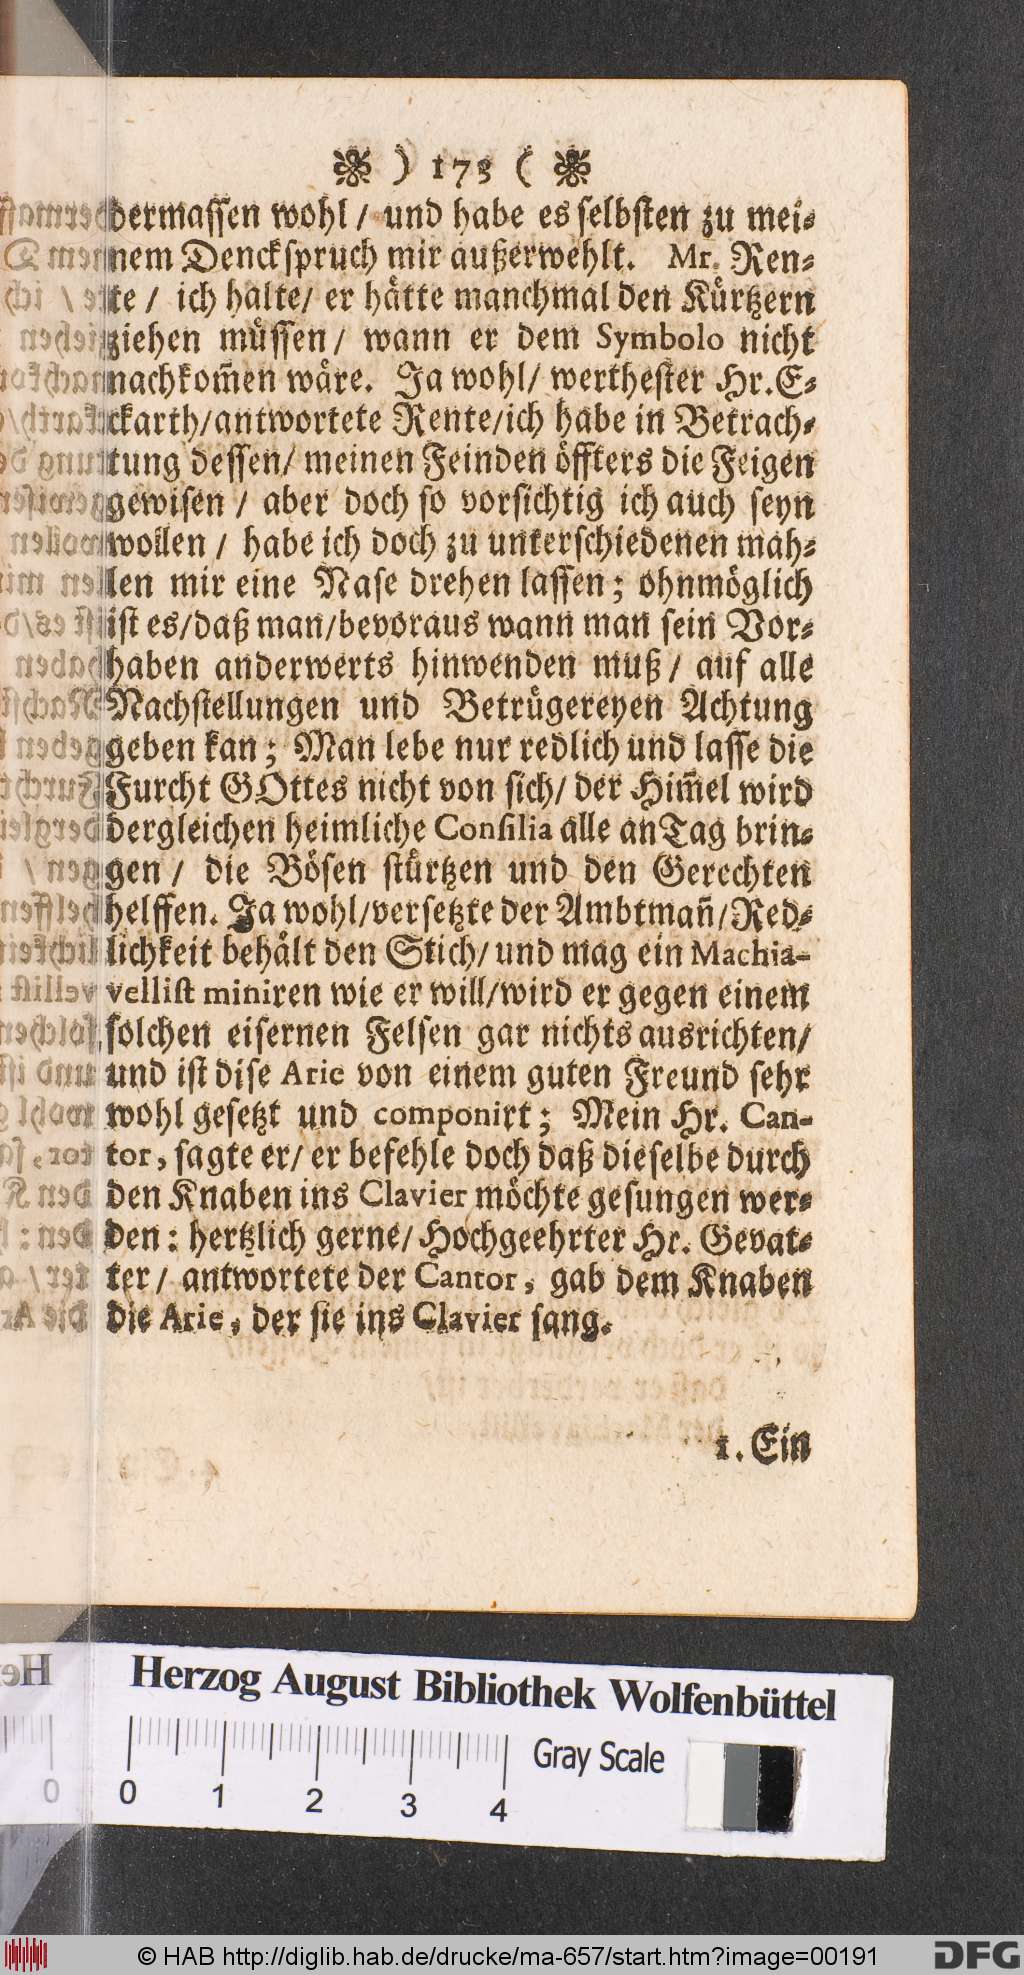 ) 173 (
dermassen wohl / und habe es selbsten zu mei-
nem Denckspruch mir außerwehlt. Mr. Ren-
te / ich halte/ er hätte manchmal den Kürtzern
ziehen müssen / wann er dem Symbolo nicht
nachkom̃en wäre. Ja wohl/ werthester Hr. E-
ckarth/antwortete Rente/ich habe in Betrach-
tung dessen/ meinen Feinden öffters die Feigen
gewisen / aber doch so vorsichtig ich auch seyn
wollen / habe ich doch zu unterschiedenen mah-
len mir eine Nase drehen lassen; ohnmöglich
ist es/daß man/bevoraus wann man sein Vor-
haben anderwerts hinwenden muß / auf alle
Nachstellungen und Betrügereyen Achtung
geben kan; Man lebe nur redlich und lasse die
Furcht GOttes nicht von sich/ der Him̃el wird
dergleichen heimliche Consilia alle an Tag brin-
gen / die Bösen stürtzen und den Gerechten
helffen. Ja wohl/versetzte der Ambtmañ/Red-
lichkeit behält den Stich/ und mag ein Machia-
vellist miniren wie er will/wird er gegen einem
solchen eisernen Felsen gar nichts ausrichten/
und ist dise Arie von einem guten Freund sehr
wohl gesetzt und componirt; Mein Hr. Can-
tor, sagte er/ er befehle doch daß dieselbe durch
den Knaben ins Clavier möchte gesungen wer-
den: hertzlich gerne/ Hochgeehrter Hr. Gevat-
ter / antwortete der Cantor, gab dem Knaben
die Arie, der sie ins Clavier sang.
1. Ein
Herzog August Bibliothek Wolfenbüttel
Gray Scale
0 1 2 3 4
© HAB http://diglib.hab.de/drucke/ma-657/start.htm?image=00191
DFG